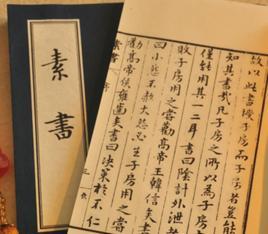 素書
故以此書授子房而子房者豈能
知其書哉凡子房之所以為子房者
僅能用其一二耳書曰陰計外泄者
敗子房用之嘗勸高帝王韓信矣書
曰小怨不赦大怨必生子房用之嘗
勸高帝侯雍齒矣書曰決策於不仁
素書
序
三